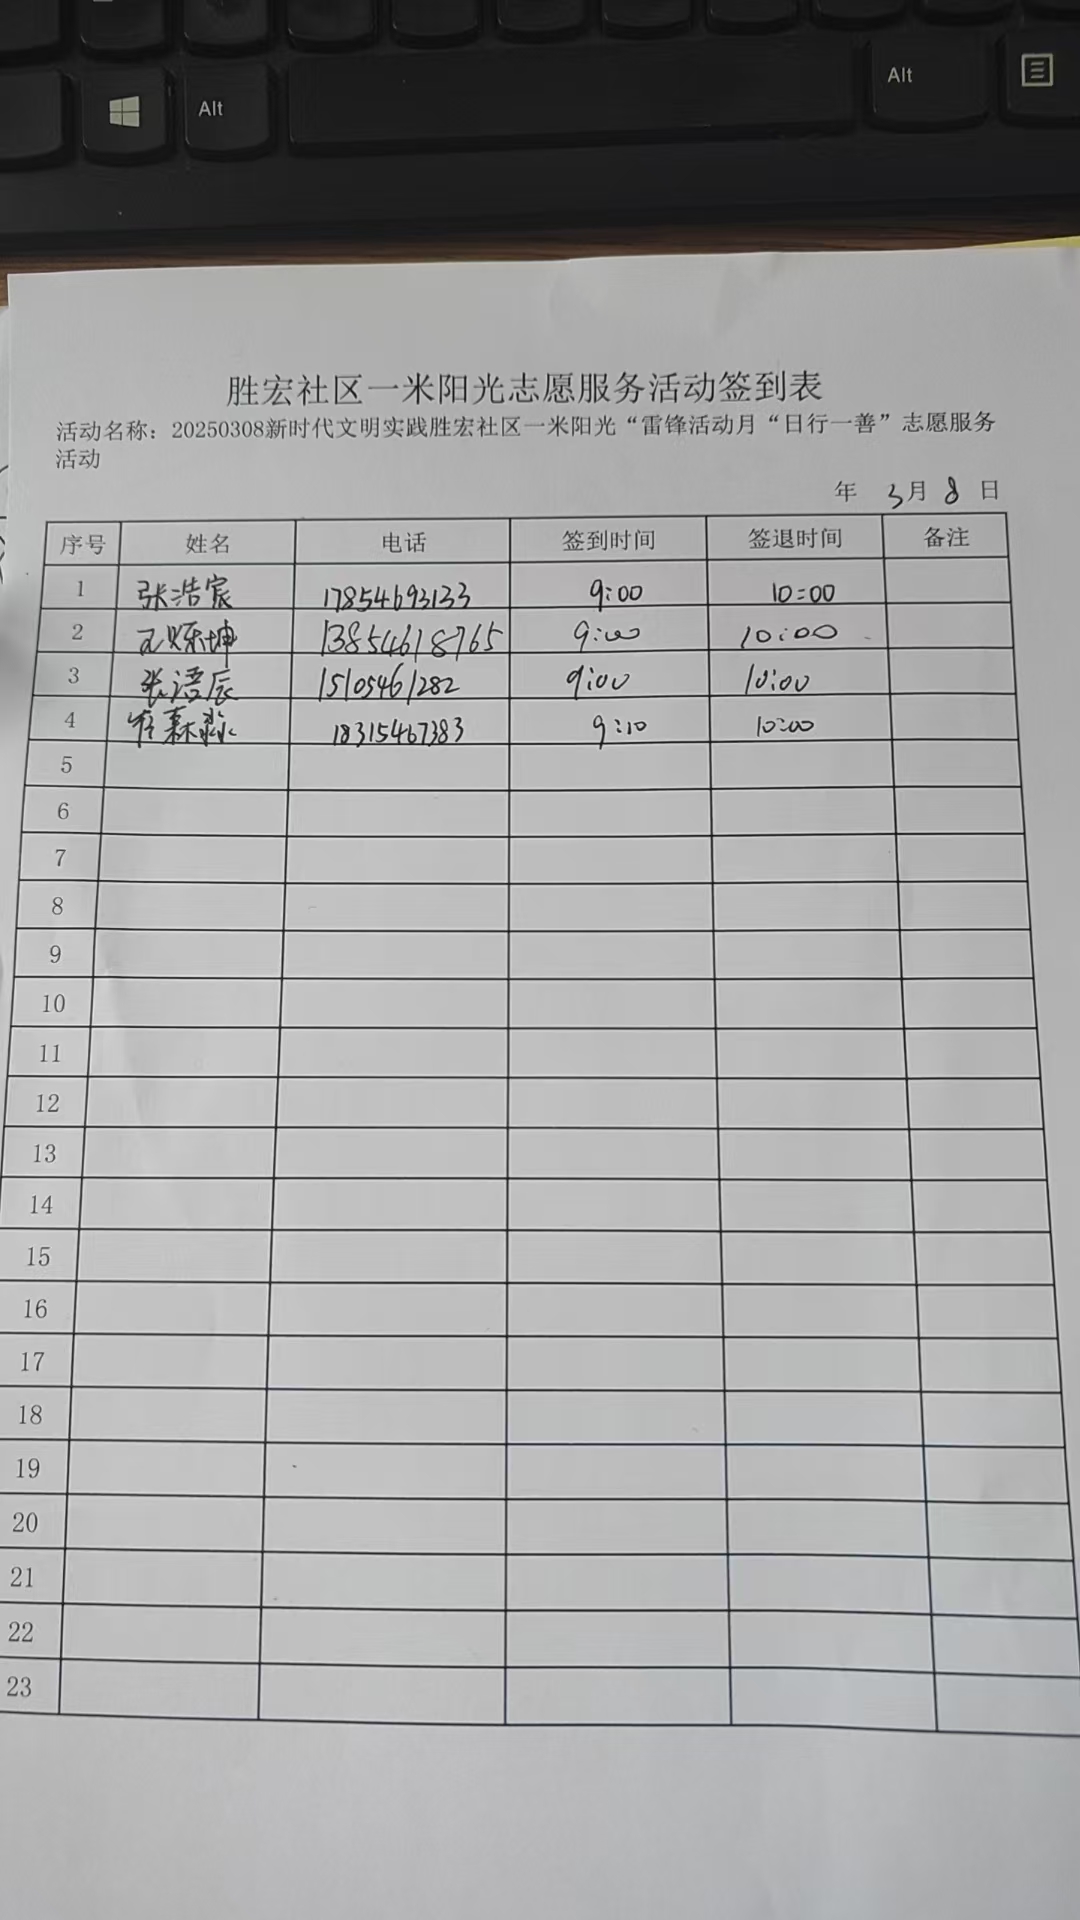 Alt
Alt
胜宏社区一米阳光志愿服务活动签到表
活动名称：20250308新时代文明实践胜宏社区一米阳光“雷锋活动月“日行一善”志愿服务
活动
年 3月 8 日
序号 姓名 电话 签到时间 签退时间 备注
1 张浩宸 17854693133 9:00 10:00
2 坤 13854618765 9:00 10:00
3 张语辰 15105461282 9:00 10:00
4 森淼 18315467383 9:10 10:00
5
6
7
8
9
10
11
12
13
14
15
16
17
18
19
20
21
22
23